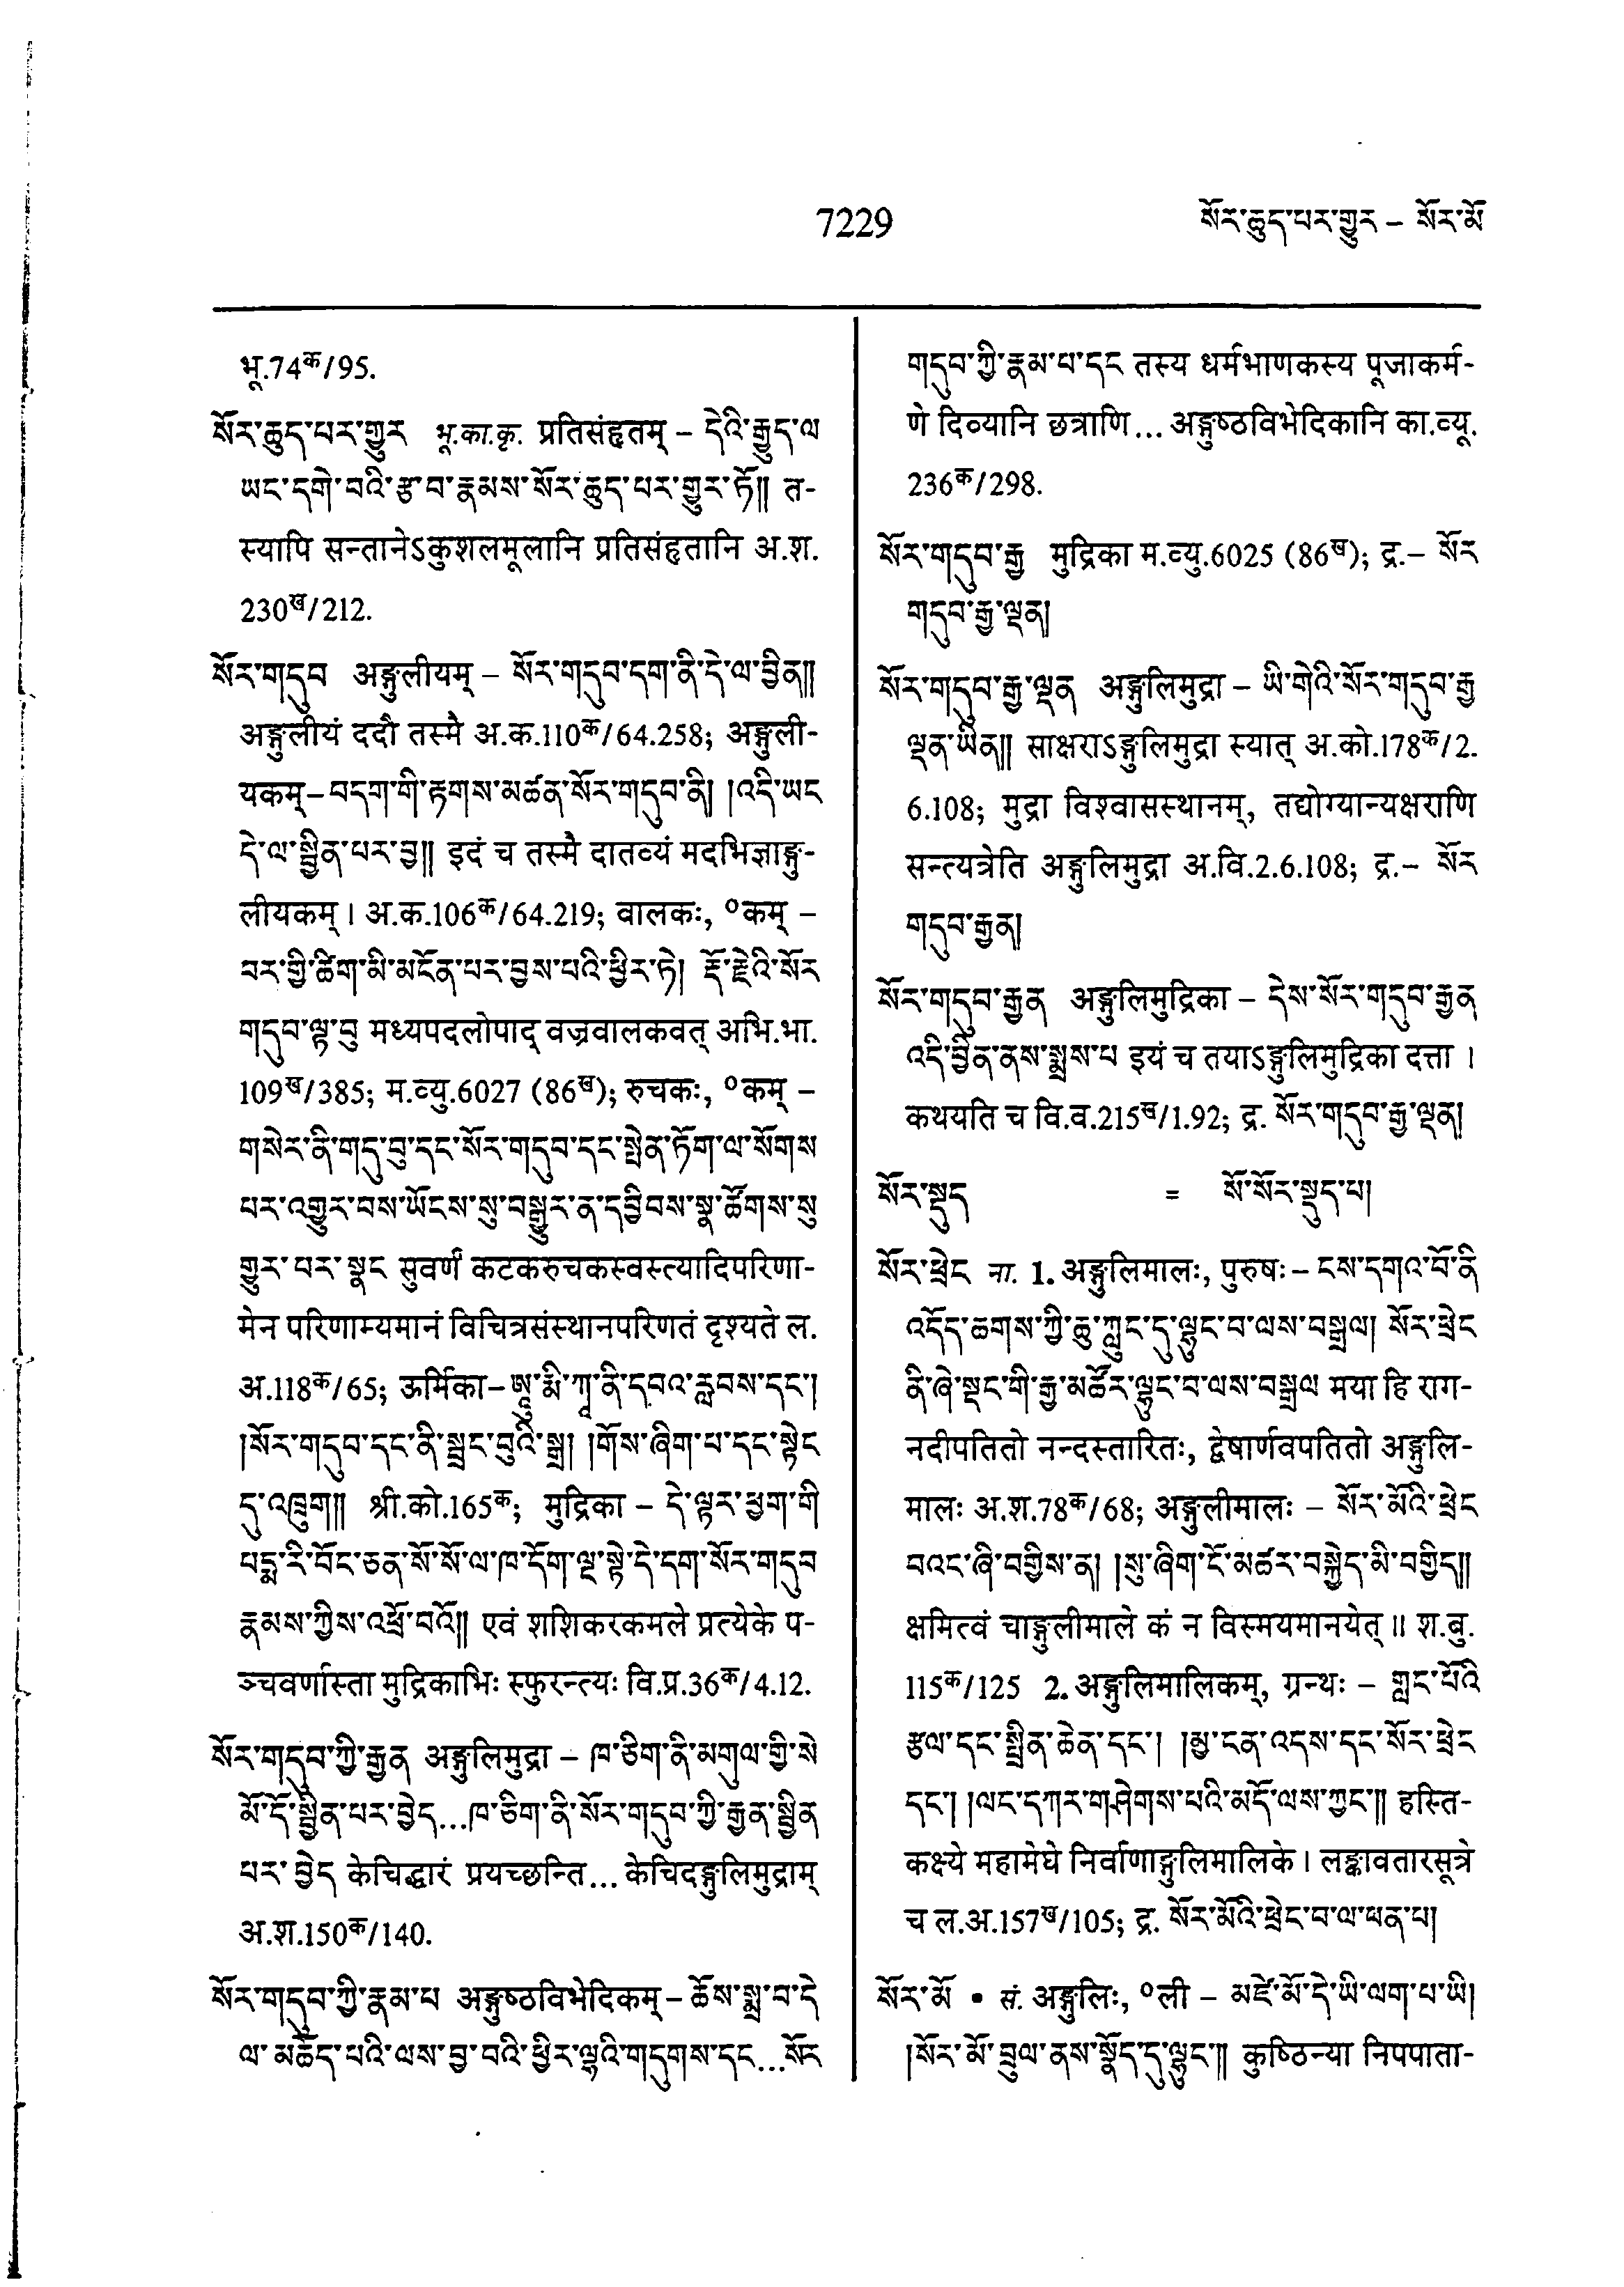 7229
སོར་ཆུད་པར་གྱུར – སོར་མོ
भू.74क/95.
སོར་ཆུད་པར་གྱུར भू.का.कृ. प्रतिसंहृतम् – དེའི་རྒྱུད་ལ
ཡང་དགེ་བའི་རྩ་བ་རྣམས་སོར་ཆུད་པར་གྱུར་ཏོ༎ त-
स्यापि सन्तानेऽकुशलमूलानि प्रतिसंहृतानि अ.श.
230ख/212.
སོར་གདུབ अङ्गुलीयम् – སོར་གདུབ་དག་ནི་དེ་ལ་བྱིན༎
अङ्गुलीयं ददौ तस्मै अ.क.110क/64.258; अङ्गुली-
यकम् – བདག་གི་རྟགས་མཚན་སོར་གདུབ་ནི། །འདི་ཡང
དེ་ལ་སྦྱིན་པར་བྱ༎ इदं च तस्मै दातव्यं मदभिज्ञाङ्गु-
लीयकम् । अ.क.106क/64.219; वालकः, ०कम् –
བར་གྱི་ཚིག་མི་མངོན་པར་བྱས་པའི་ཕྱིར་ཏེ། རྡོ་རྗེའི་སོར
གདུབ་ལྟ་བུ मध्यपदलोपाद् वज्रवालकवत् अभि.भा.
109ख/385; म.व्यु.6027 (86ख); रुचकः, ०कम् –
གསེར་ནི་གདུ་བུ་དང་སོར་གདུབ་དང་སྤེན་ཏོག་ལ་སོགས
པར་འགྱུར་བས་ཡོངས་སུ་བསྒྱུར་ན་དབྱིབས་སྣ་ཚོགས་སུ
གྱུར་པར་སྣང सुवर्णं कटकरुचकस्वस्त्यादिपरिणा-
मेन परिणाम्यमानं विचित्रसंस्थानपरिणतं दृश्यते ल.
अ.118क/65; ऊर्मिका – ཨཱུ་རྨི་ཀཱ་ནི་དབའ་རླབས་དང་།
།སོར་གདུབ་དང་ནི་སྦྲང་བུའི་སྒྲ། །གོས་ཞིག་པ་དང་སྟེང
དུ་འཁྲུག༎ श्री.को.165क; मुद्रिका – དེ་ལྟར་ཕྱག་གི
པདྨ་རི་བོང་ཅན་སོ་སོ་ལ་ཁ་དོག་ལྔ་སྟེ་དེ་དག་སོར་གདུབ
རྣམས་ཀྱིས་འཕྲོ་བའོ༎ एवं शशिकरकमले प्रत्येके प-
ञ्चवर्णास्ता मुद्रिकाभिः स्फुरन्त्यः वि.प्र.36क/4.12.
སོར་གདུབ་ཀྱི་རྒྱན अङ्गुलिमुद्रा – ཁ་ཅིག་ནི་མགུལ་གྱི་སེ
མོ་དོ་སྦྱིན་པར་བྱེད...ཁ་ཅིག་ནི་སོར་གདུབ་ཀྱི་རྒྱན་སྦྱིན
པར་བྱེད केचिद्धारं प्रयच्छन्ति... केचिदङ्गुलिमुद्राम्
अ.श.150क/140.
སོར་གདུབ་ཀྱི་རྣམ་པ अङ्गुष्ठविभेदिकम् – ཆོས་སྨྲ་བ་དེ
ལ་མཆོད་པའི་ལས་བྱ་བའི་ཕྱིར་ལྷའི་གདུགས་དང...སོར
གདུབ་ཀྱི་རྣམ་པ་དང तस्य धर्मभाणकस्य पूजाकर्म-
णे दिव्यानि छत्राणि... अङ्गुष्ठविभेदिकानि का.व्यू.
236क/298.
སོར་གདུབ་རྒྱ मुद्रिका म.व्यु.6025 (86ख); द्र.– སོར
གདུབ་རྒྱ་ལྡན།
སོར་གདུབ་རྒྱ་ལྡན अङ्गुलिमुद्रा – ཡི་གེའི་སོར་གདུབ་རྒྱ
ལྡན་ཡིན༎ साक्षराऽङ्गुलिमुद्रा स्यात् अ.को.178क/2.
6.108; मुद्रा विश्वासस्थानम्, तद्योग्यान्यक्षराणि
सन्त्यत्रेति अङ्गुलिमुद्रा अ.वि.2.6.108; द्र.– སོར
གདུབ་རྒྱན།
སོར་གདུབ་རྒྱན अङ्गुलिमुद्रिका – དེས་སོར་གདུབ་རྒྱན
འདི་བྱིན་ནས་སྨྲས་པ इयं च तयाऽङ्गुलिमुद्रिका दत्ता ।
कथयति च वि.व.215ख/1.92; द्र. སོར་གདུབ་རྒྱ་ལྡན།
སོར་སྡུད = སོ་སོར་སྡུད་པ།
སོར་ཕྲེང ना. 1. अङ्गुलिमालः, पुरुषः – ངས་དགའ་བོ་ནི
འདོད་ཆགས་ཀྱི་ཆུ་ཀླུང་དུ་ལྷུང་བ་ལས་བསྒྲལ། སོར་ཕྲེང
ནི་ཞེ་སྡང་གི་རྒྱ་མཚོར་ལྷུང་བ་ལས་བསྒྲལ मया हि राग-
नदीपतितो नन्दस्तारितः, द्वेषार्णवपतितो अङ्गुलि-
मालः अ.श.78क/68; अङ्गुलीमालः – སོར་མོའི་ཕྲེང
བའང་ཞི་བགྱིས་ན། །སུ་ཞིག་ངོ་མཚར་བསྐྱེད་མི་བགྱིད༎
क्षमित्वं चाङ्गुलीमाले कं न विस्मयमानयेत् ॥ श.बु.
115क/125 2. अङ्गुलिमालिकम्, ग्रन्थः – གླང་པོའི
རྩལ་དང་སྤྲིན་ཆེན་དང་། །མྱ་ངན་འདས་དང་སོར་ཕྲེང
དང་། །ལང་དཀར་གཤེགས་པའི་མདོ་ལས་ཀྱང་༎ हस्ति-
कक्ष्ये महामेघे निर्वाणाङ्गुलिमालिके । लङ्कावतारसूत्रे
च ल.अ.157ख/105; द्र. སོར་མོའི་ཕྲེང་བ་ལ་ཕན་པ།
སོར་མོ • सं. अङ्गुलिः, ०ली – མཛེ་མོ་དེ་ཡི་ལག་པ་ཡི།
།སོར་མོ་བྲུལ་ནས་སྣོད་དུ་ལྷུང་༎ कुष्ठिन्या निपपाता-